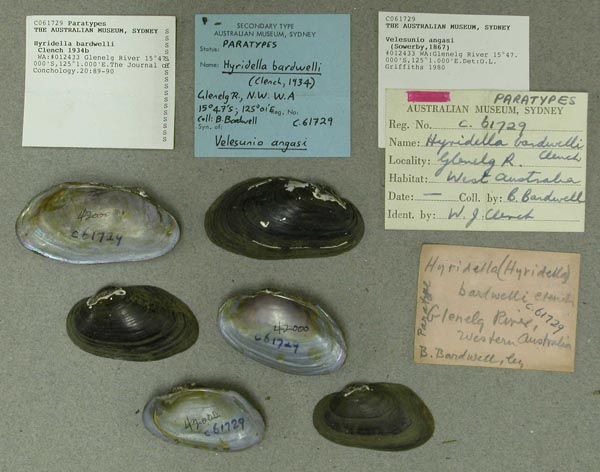 C061729 Paratypes
THE AUSTRALIAN MUSEUM, SYDNEY
Hyridella bardwelli
Clench 1934b
WA:#012433 Glenelg River 15°47.
000'S,125°1.000'E.The Journal of
Conchology.20:89-90
SECONDARY TYPE
AUSTRALIAN MUSEUM, SYDNEY
Status: PARATYPES
Name: Hyridella bardwelli
(Clench, 1934)
Glenelg R, N.W. W.A
15°47's; 125°01'E Reg. No.
Coll: B. Bardwell C.61729
Syn. of:
Velesunio angasi
C061729
THE AUSTRALIAN MUSEUM, SYDNEY
Velesunio angasi
(Sowerby,1867)
#012433 WA:Glenelg River 15°47.
000'S,125°1.000'E.Det:O.L.
Griffiths 1980
PARATYPES
AUSTRALIAN MUSEUM, SYDNEY
Reg. No. C. 61729
Name: Hyridella bardwelli
Clench
Locality: Glenelg R.
Habitat: West Australia
Date: — Coll. by: B. Bardwell
Ident. by: W. J. Clench
Hyridella (Hyridella)
bardwelli Clench
C.61729
Paratype
Glenelg River,
Western Australia
B. Bardwell, leg
42000
C61729
42000
C61729
42000
C61729